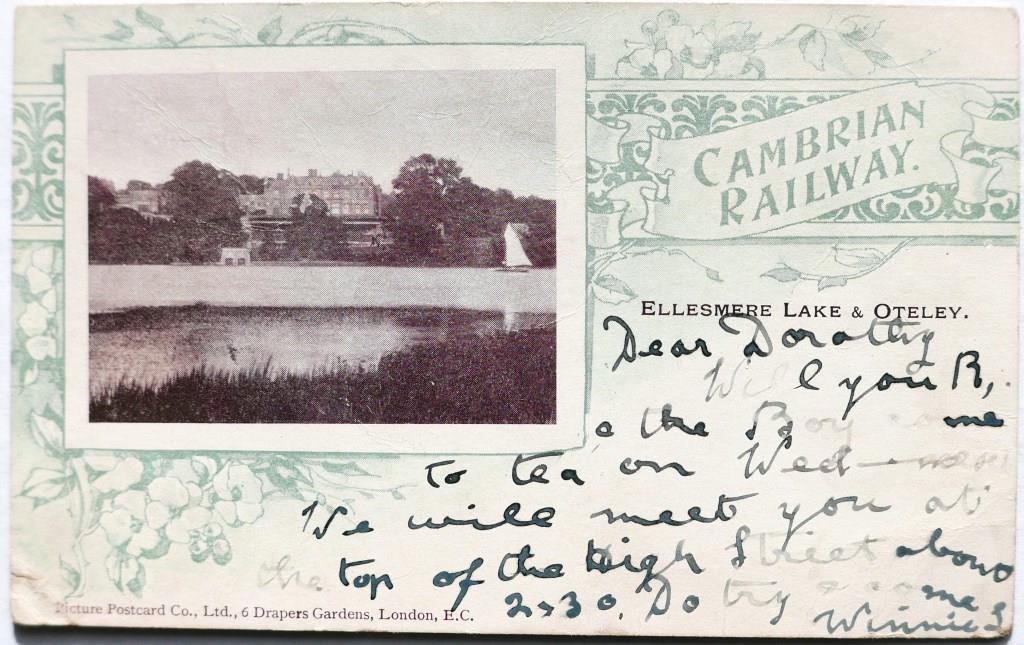 CAMBRIAN
RAILWAY.
ELLESMERE LAKE & OTELEY.
Dear Dorothy
Will you R,
& the Boy come
to tea on Wed
We will meet you at
the top of the High Street about
2.30. Do try & come
Winnie
Picture Postcard Co., Ltd., 6 Drapers Gardens, London, E.C.